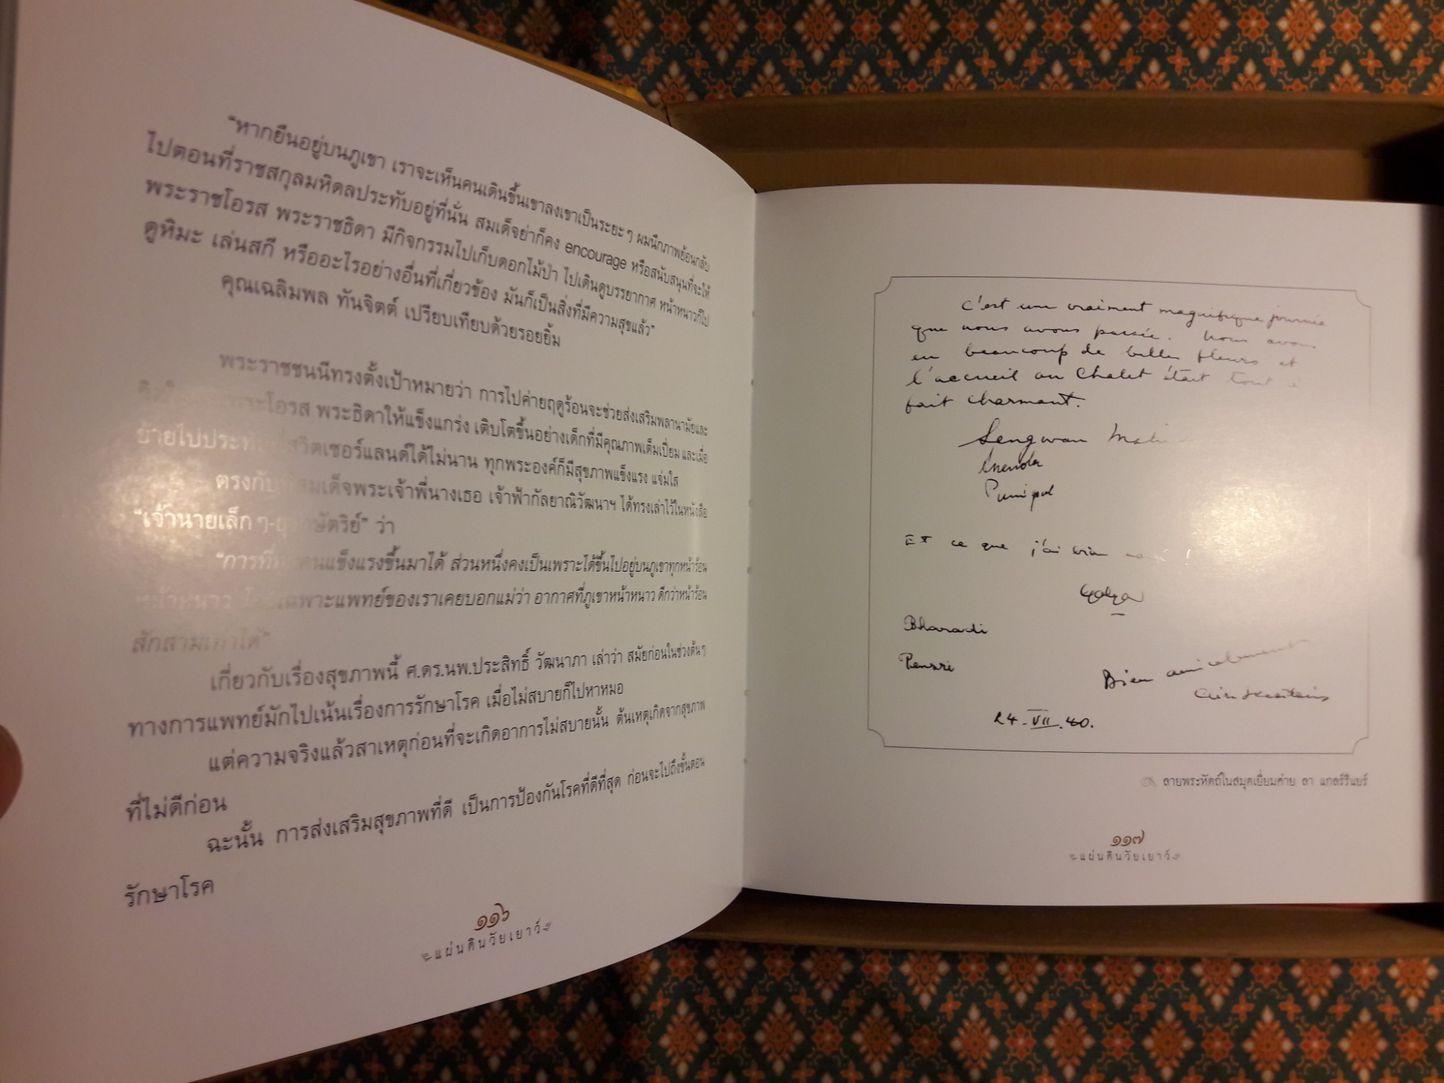 "หากยืนอยู่บนภูเขา เราจะเห็นคนเดินขึ้นเขาลงเขาเป็นระยะๆ ผมนึกภาพย้อนกลับ
ไปตอนที่ราชสกุลมหิดลประทับอยู่ที่นั่น สมเด็จย่าก็คง encourage หรือสนับสนุนที่จะให้
พระราชโอรส พระราชธิดา มีกิจกรรมไปเก็บดอกไม้ป่า ไปเดินดูบรรยากาศ หน้าหนาวก็ไป
ดูหิมะ เล่นสกี หรืออะไรอย่างอื่นที่เกี่ยวข้อง มันก็เป็นสิ่งที่มีความสุขแล้ว"
คุณเฉลิมพล ทันจิตต์ เปรียบเทียบด้วยรอยยิ้ม
พระราชชนนีทรงตั้งเป้าหมายว่า การไปค่ายฤดูร้อนจะช่วยส่งเสริมพลานามัยและ
พระโอรส พระธิดาให้แข็งแกร่ง เติบโตขึ้นอย่างเด็กที่มีคุณภาพเต็มเปี่ยม และเมื่อ
ย้ายไปประทับ สวิตเซอร์แลนด์ได้ไม่นาน ทุกพระองค์ก็มีสุขภาพแข็งแรง แจ่มใส
ตรงกับ สมเด็จพระเจ้าพี่นางเธอ เจ้าฟ้ากัลยาณิวัฒนาฯ ได้ทรงเล่าไว้ในหนังสือ
"เจ้านายเล็กๆ-ยุวกษัตริย์" ว่า
"การที่ คนแข็งแรงขึ้นมาได้ ส่วนหนึ่งคงเป็นเพราะได้ขึ้นไปอยู่บนภูเขาทุกหน้าร้อน
หน้าหนาว โดยเฉพาะแพทย์ของเราเคยบอกแม่ว่า อากาศที่ภูเขาหน้าหนาว ดีกว่าหน้าร้อน
สักสามเท่าได้"
เกี่ยวกับเรื่องสุขภาพนี้ ศ.ดร.นพ.ประสิทธิ์ วัฒนาภา เล่าว่า สมัยก่อนในช่วงต้นๆ
ทางการแพทย์มักไปเน้นเรื่องการรักษาโรค เมื่อไม่สบายก็ไปหาหมอ
แต่ความจริงแล้วสาเหตุก่อนที่จะเกิดอาการไม่สบายนั้น ต้นเหตุเกิดจากสุขภาพ
ที่ไม่ดีก่อน
ฉะนั้น การส่งเสริมสุขภาพที่ดี เป็นการป้องกันโรคที่ดีที่สุด ก่อนจะไปถึงขั้นตอน
รักษาโรค
๑๑๖
แผ่นดินวัยเยาว์
C'est une vraiment magnifique journée
que nous avons passée. Nous avons
eu beaucoup de belles fleurs et
l'accueil au Chalet était tout à
fait charmant.
Sengwan
Ananda
Pumipol
Et ce que j'ai bien
Galya
Bharadi
Rensri
Bien amicalement
24.VII.40.
ลายพระหัตถ์ในสมุดเยี่ยมค่าย ลา แกลร์รีแยร์
๑๑๗
แผ่นดินวัยเยาว์